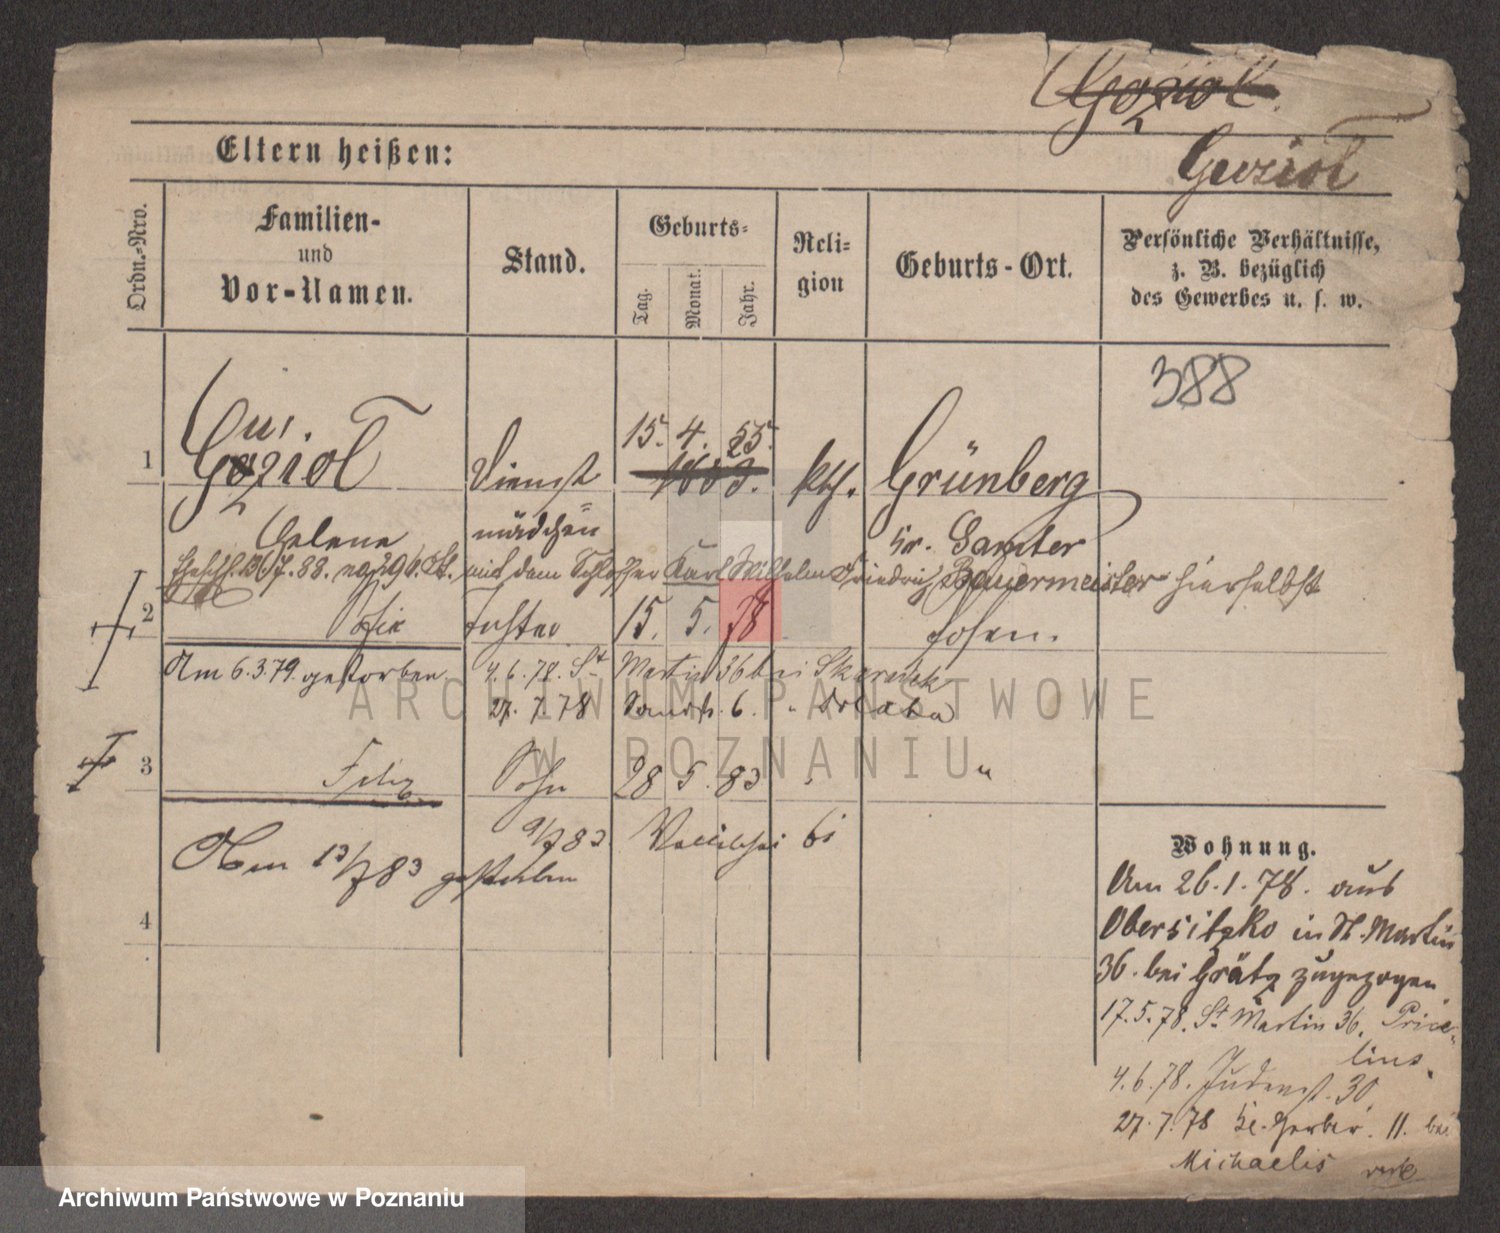 Goziol
Guziol
Eltern heißen:
Ordn.-Nro.
Familien-
und
Vor-Namen.
Stand.
Geburts-
Tag.
Monat.
Jahr.
Reli-
gion
Geburts-Ort.
Persönliche Verhältnisse,
z. B. bezüglich
des Gewerbes u. s. w.
388
1
Goziol
Dienst
15. 4. 55.
kth.
Grünberg
Helene
mädchen
Kr. Samter
88. mit dem Schlosser Karl Wilhelm Friedrich Bauermeister hierselbst
2
Tochter
15. 5. 78
Posen.
Am 6.3.79. gestorben
4.6.78. St Martin 36 bei
27. 7. 78
6.
3
Felix
Sohn
28 5. 83
"
9/7 83
Am 13/7 83 gestorben
4
Wohnung.
Am 26.1.78. aus
Obersitzko in St. Martin
36. bei Grätz zugezogen
17.5.78. St Martin 36.
4.6.78. Judenst. 30
27.7.78 Kl. Gerber. 11. bei
Michaelis
ARCHIWUM PAŃSTWOWE
W POZNANIU
Archiwum Państwowe w Poznaniu